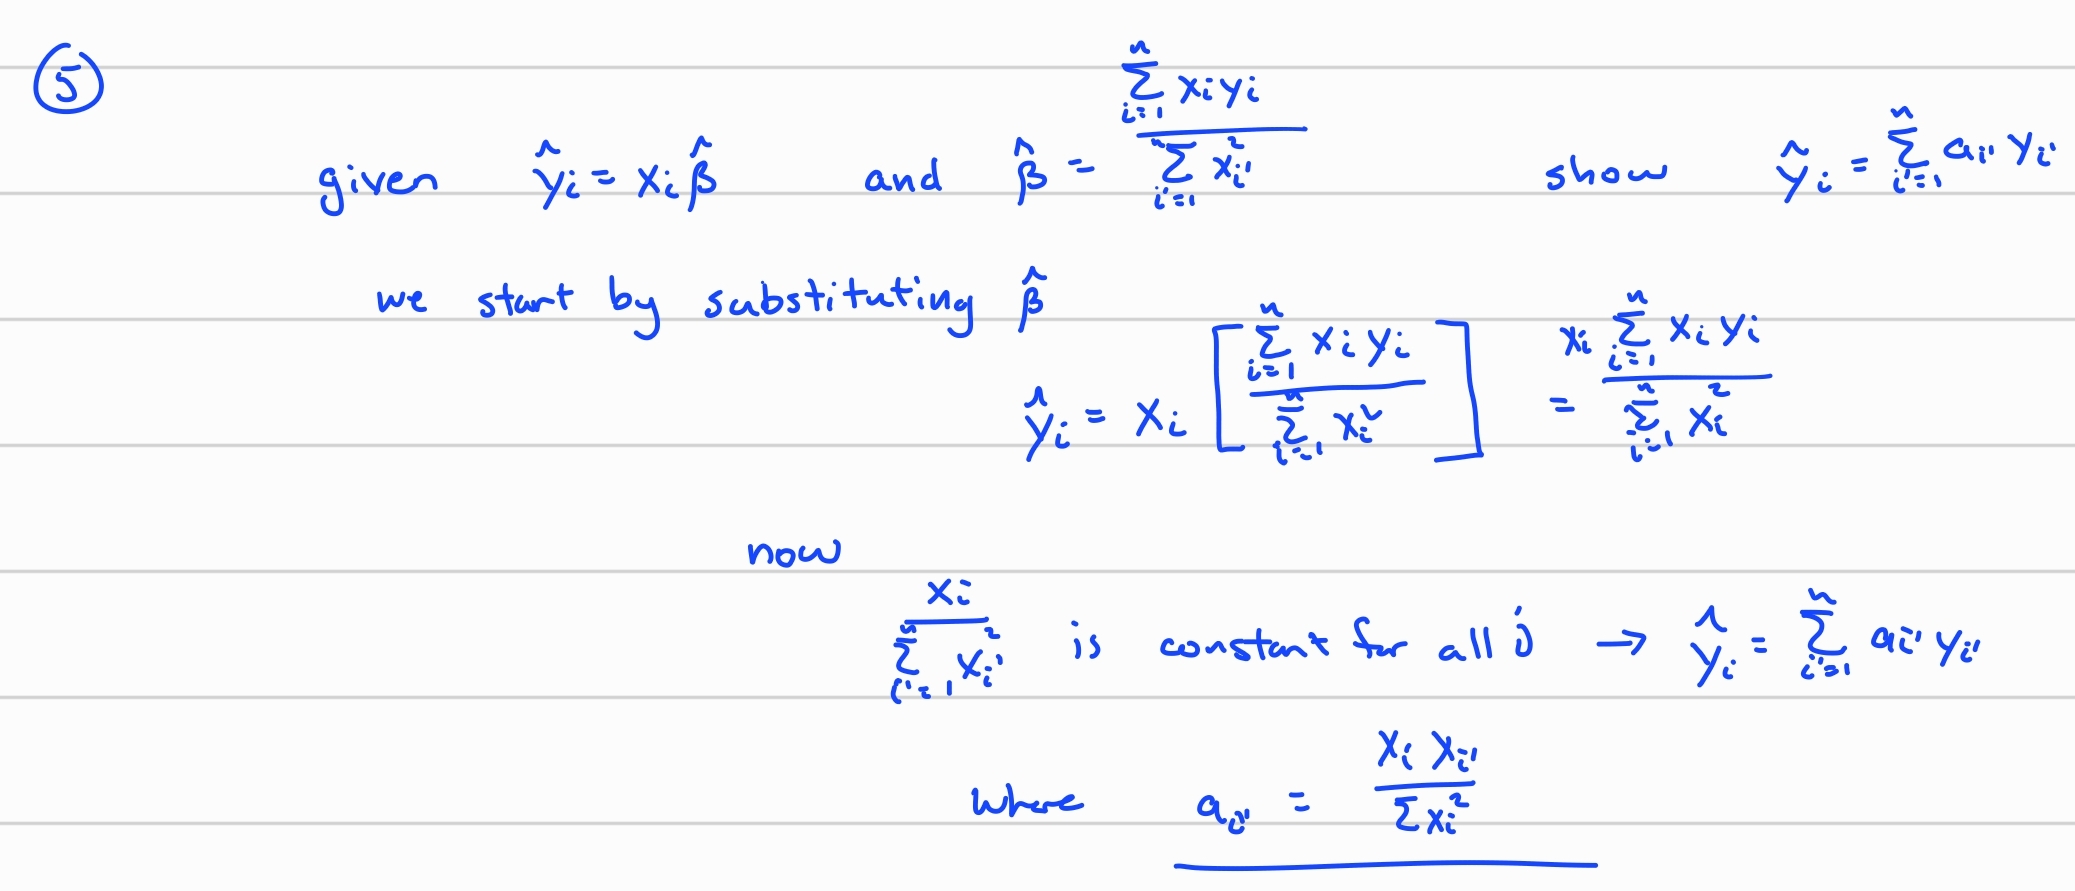 ⑤
given ŷᵢ = xᵢ β̂ and β̂ = (∑ᵢ₌₁ⁿ xᵢyᵢ) / (∑ᵢ'₌₁ⁿ xᵢ'²) show ŷᵢ = ∑ᵢ'₌₁ⁿ aᵢ' yᵢ'
we start by substituting β̂
ŷᵢ = xᵢ [ (∑ᵢ₌₁ⁿ xᵢ yᵢ) / (∑ᵢ'₌₁ⁿ xᵢ'²) ] = (xᵢ ∑ᵢ₌₁ⁿ xᵢ yᵢ) / (∑ᵢ'₌₁ⁿ xᵢ'²)
now
xᵢ / (∑ᵢ'₌₁ⁿ xᵢ'²) is constant for all i → ŷᵢ = ∑ᵢ'₌₁ⁿ aᵢ' yᵢ'
where aᵢ' = (xᵢ xᵢ') / (∑ xᵢ²)